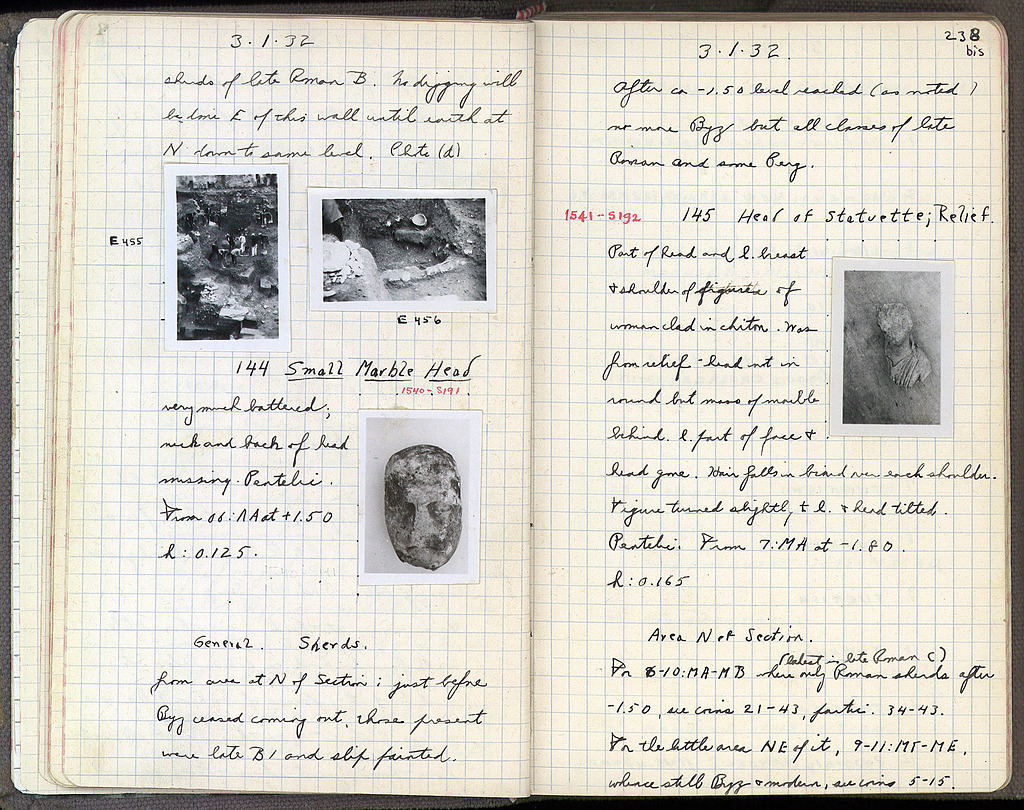 3·1·32
sherds of late Roman B. No digging will
be done E of this wall until earth at
N down to same level. Photo (d)
E 455
E 456
144 Small Marble Head
1540-S191
very much battered;
neck and back of head
missing. Pentelic.
From 66:ΛA at +1.50
h: 0.125.
General. Sherds.
from area at N of Section: just before
Byz ceased coming out, those present
were late B1 and slip painted.
238
bis
3·1·32.
After ca -1.50 level reached (as noted)
no more Byz but all classes of late
Roman and some Perg.
1541-S192
145 Head of Statuette; Relief.
Part of head and l. breast
& shoulder of figure of
woman clad in chiton. Was
from relief - head not in
round but mass of marble
behind. l. part of face &
head gone. Hair falls in braid over each shoulder.
Figure turned slightly to l. & head tilted.
Pentelic. From 7:MA at -1.80.
h: 0.165
Area N of Section.
(latest is late Roman C)
For 6-10:MA-MB where only Roman sherds after
-1.50, see coins 21-43, partic. 34-43.
For the little area NE of it, 9-11:MΓ-ME,
whence still Byz & modern, see coins 5-15.